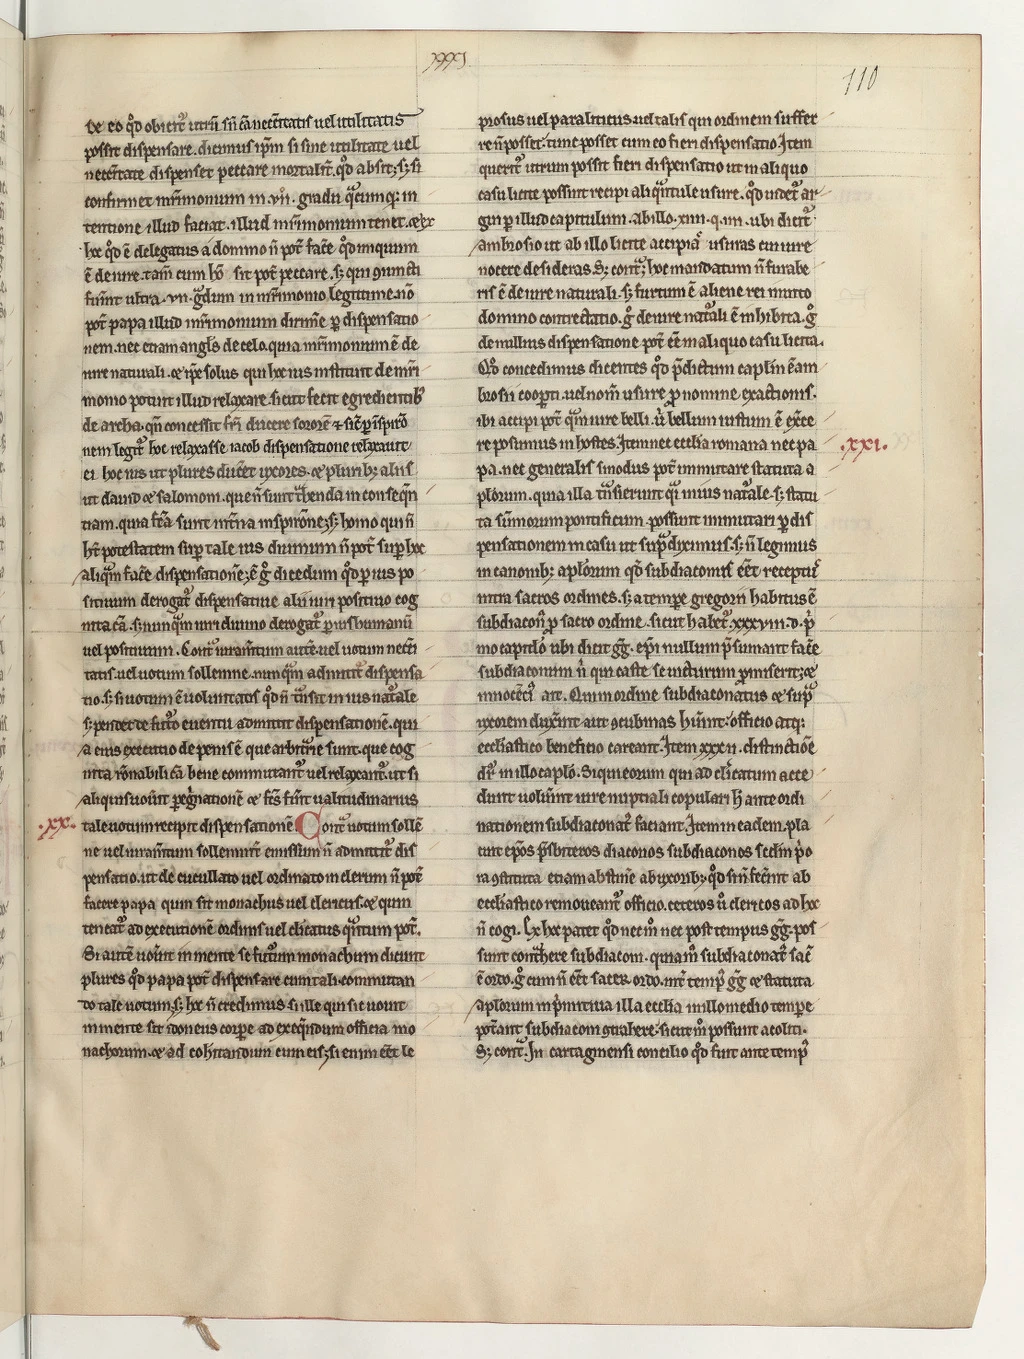 xxxi.
110
de eo qd̄ obicit᷑ utrū sñ cā necc̄itatis uel utilitatis
possit dispensare. dicimus ip̄m si sine utilitate uel
necc̄itate dispenset peccare mortalit᷑. qd̄ absit; s; si
confirmet mr̄imonium in .vii. gradu q̄cumq; in
tentione illud faciat. illud mr̄imonium tenet. ⁊ ex
hoc qd̄ ē delegatus a domino ñ pot̄ face᷑ qd̄ iniquum
ē de iure. tam̄ cum h̄o sit pot̄ peccare. s; qui ↄiuncti
fuīnt ultra .vii. g̊dum in mr̄imonio legittime. nō
pot̄ papa illud mr̄imonium dirim̄e ꝑ dispensatio
nem. nec etiam angl̄s de celo. quia mr̄imonium ē de
iure naturali. ⁊ ip̄e solus qui hoc ius instituit de mr̄i
monio potuit illud relaxare. sicut fecit egredientib᷒
de archa. qn̄ concessit fr̄i ducere sororē ⁊ sic̄ ꝑ īspir̄o
nem legit᷑ hoc relaxasse. iacob dispensatione relaxauit
ei hoc ius ut plures duceret uxores. ⁊ plurib; aliis
ut dauid ⁊ salomoni. que ñ sunt t̊henda in conseqn̄
tiam. quia fc̄a sunt int̄na inspir̄one; s; homo qui ñ
ht̄ potestatem sup̱ tale ius diuinum ñ pot̄ sup̱ hoc
aliq̄m face᷑ dispensationē; ē g̊ dicēdum qd̄ papa ius po
situum derogat᷑ dispensatiue alii iuri positiuo cog
nita cā. s; nunq̄m iuri diuino derogat᷑ ꝑ ius humanū
uel positiuum. Cont̊ iuram̄tum aut̄ uel uotum necc̄i
tatis. uel uotum sollemne. nunq̄m admittit᷑ dispensa
tio. s; si uotum ē uoluntatis qd̄ ñ t̊nsit in ius nat̊ale
s; pendet de fut̊o euentu admittit dispensationē. qui
a eius executio de penis ē que arbitr̄ie sunt. que cog
nita rōnabili cā bene commutant᷑ uel relaxant᷑. ut si
aliquis uouīt peginationē ⁊ fc̄s fūit ualitudinarius
·xx· tale uotum recipit dispensationē Cont̊ uotum sollē
ne uel iuram̄tum sollemnit᷑ emissum ñ admittit᷑ dis
pensatio. ut de cucullato uel ordinato in clerum ñ pot̄
facere papa quin sit monachus uel clericus. ⁊ quin
teneat᷑ ad executionē ordinis uel clicatus q̄ntum pot̄.
Si autē uouīt in mente se fut̊um monachum dicunt
plures qd̄ papa pot̄ dispensare cum tali. commutan
do tale uotum. s; hoc ñ credimus si ille qui sic uouit
in mente sit idoneus corpe ad exeq̄ndum officia mo
nachorum. ⁊ ad cohītandum cum eis; si enim eēt le
prosus uel paraliticus. uel talis qui ordinem suffer
re ñ posset. tunc posset cum eo fieri dispensatio. Item
querit᷑ utrum possit fieri dispensatio ut in aliquo
casu licite possint recipi aliq̊ titule usure. qd̄ uidet᷑ ar
gui ꝑ illud capitulum. ab illo .xiiii. q. iiii. ubi dicit᷑
ambrosio ut ab illo licite accipiat᷑ usuras cui iure
nocere desideras. S; cont̊; hoc mandatum ñ furabe
ris ē de iure naturali. s; furtum ē aliene rei inuito
domino contrectatio. g̊ de iure nat̊ali ē inhibita. g̊
de nullius dispensatione pot̄ ēē in aliquo casu licita.
Qd̄ concedimus dicentes qd̄ p̄dictum caplm̄ ē am
brosii coopti. uel nom̄ usure ꝓ nomine exactionis.
ibi accipi pot̄ q̄m iure belli. ū bellum iustum ē exce
re possumus in hostes. Item nec eccl̄ia romana nec pa ·xxi·
pa. nec generalis sinodus pot̄ immutare statuta a
pl̄orum. quia illa t̊nsierunt q̊i in ius nat̊ale. s; statu
ta sūmorum pontificum possunt immutari ꝑ dis
pensationem in casu ut sup̊ diximus. s; ñ legimus
in canonib; apl̄orum qd̄ subdiaconus ēēt receptus
intra sacros ordines. s; a tempe gregorii habitus ē
subdiacon᷒ ꝓ sacro ordine. sicut habet᷑ .xxxviii. d. p̊
mo capitl̄o ubi dicit gg̊. ep̄i nullum p̄sumant face᷑
subdiaconum ñ qui caste se uicturum promiserit; ⁊
innocēci᷒ ait. Qui in ordine subdiaconatus ⁊ sup̊
uxorem duxerint aut ↄcubinas hūint᷑. officio atq;
eccl̄iastico beneficio careant. Item xxxii. distinctiōe
dr̄ in illo capl̄o. Si qui eorum qui ad cl̄icatum acce
dunt uolūint iure nuptiali copulari h̄ ante ordi
nationem subdiaconat᷒ faciant. Item in eadem. pla
cuit ep̄os p̄sbiteros diaconos subdiaconos sc̄dm p̊o
ra ↄstituta etiam abstin̄e ab uxorib; qd̄ si ñ fec̄int ab
eccl̄iastico remoueant᷑ officio. ceteros ū clericos ad hoc
ñ cogi. Ex hoc patet qd̄ nec in̄ nec post tempus gg̊. pos
sunt cont̊here subdiaconi. quoniam subdiaconat᷒ sac̄
ē ordo. g̊ cum ñ ēēt sacer ordo. int̄ temp᷒ gg̊ ⁊ statuta
apl̄orum in p̊mitiua illa eccl̄ia in illo medio tempe
pot̄ant subdiaconi ↄt̊here. sicut m̊ possunt acoliti.
S; cont̊. In cartaginensi concilio qd̄ fuit ante temp᷒